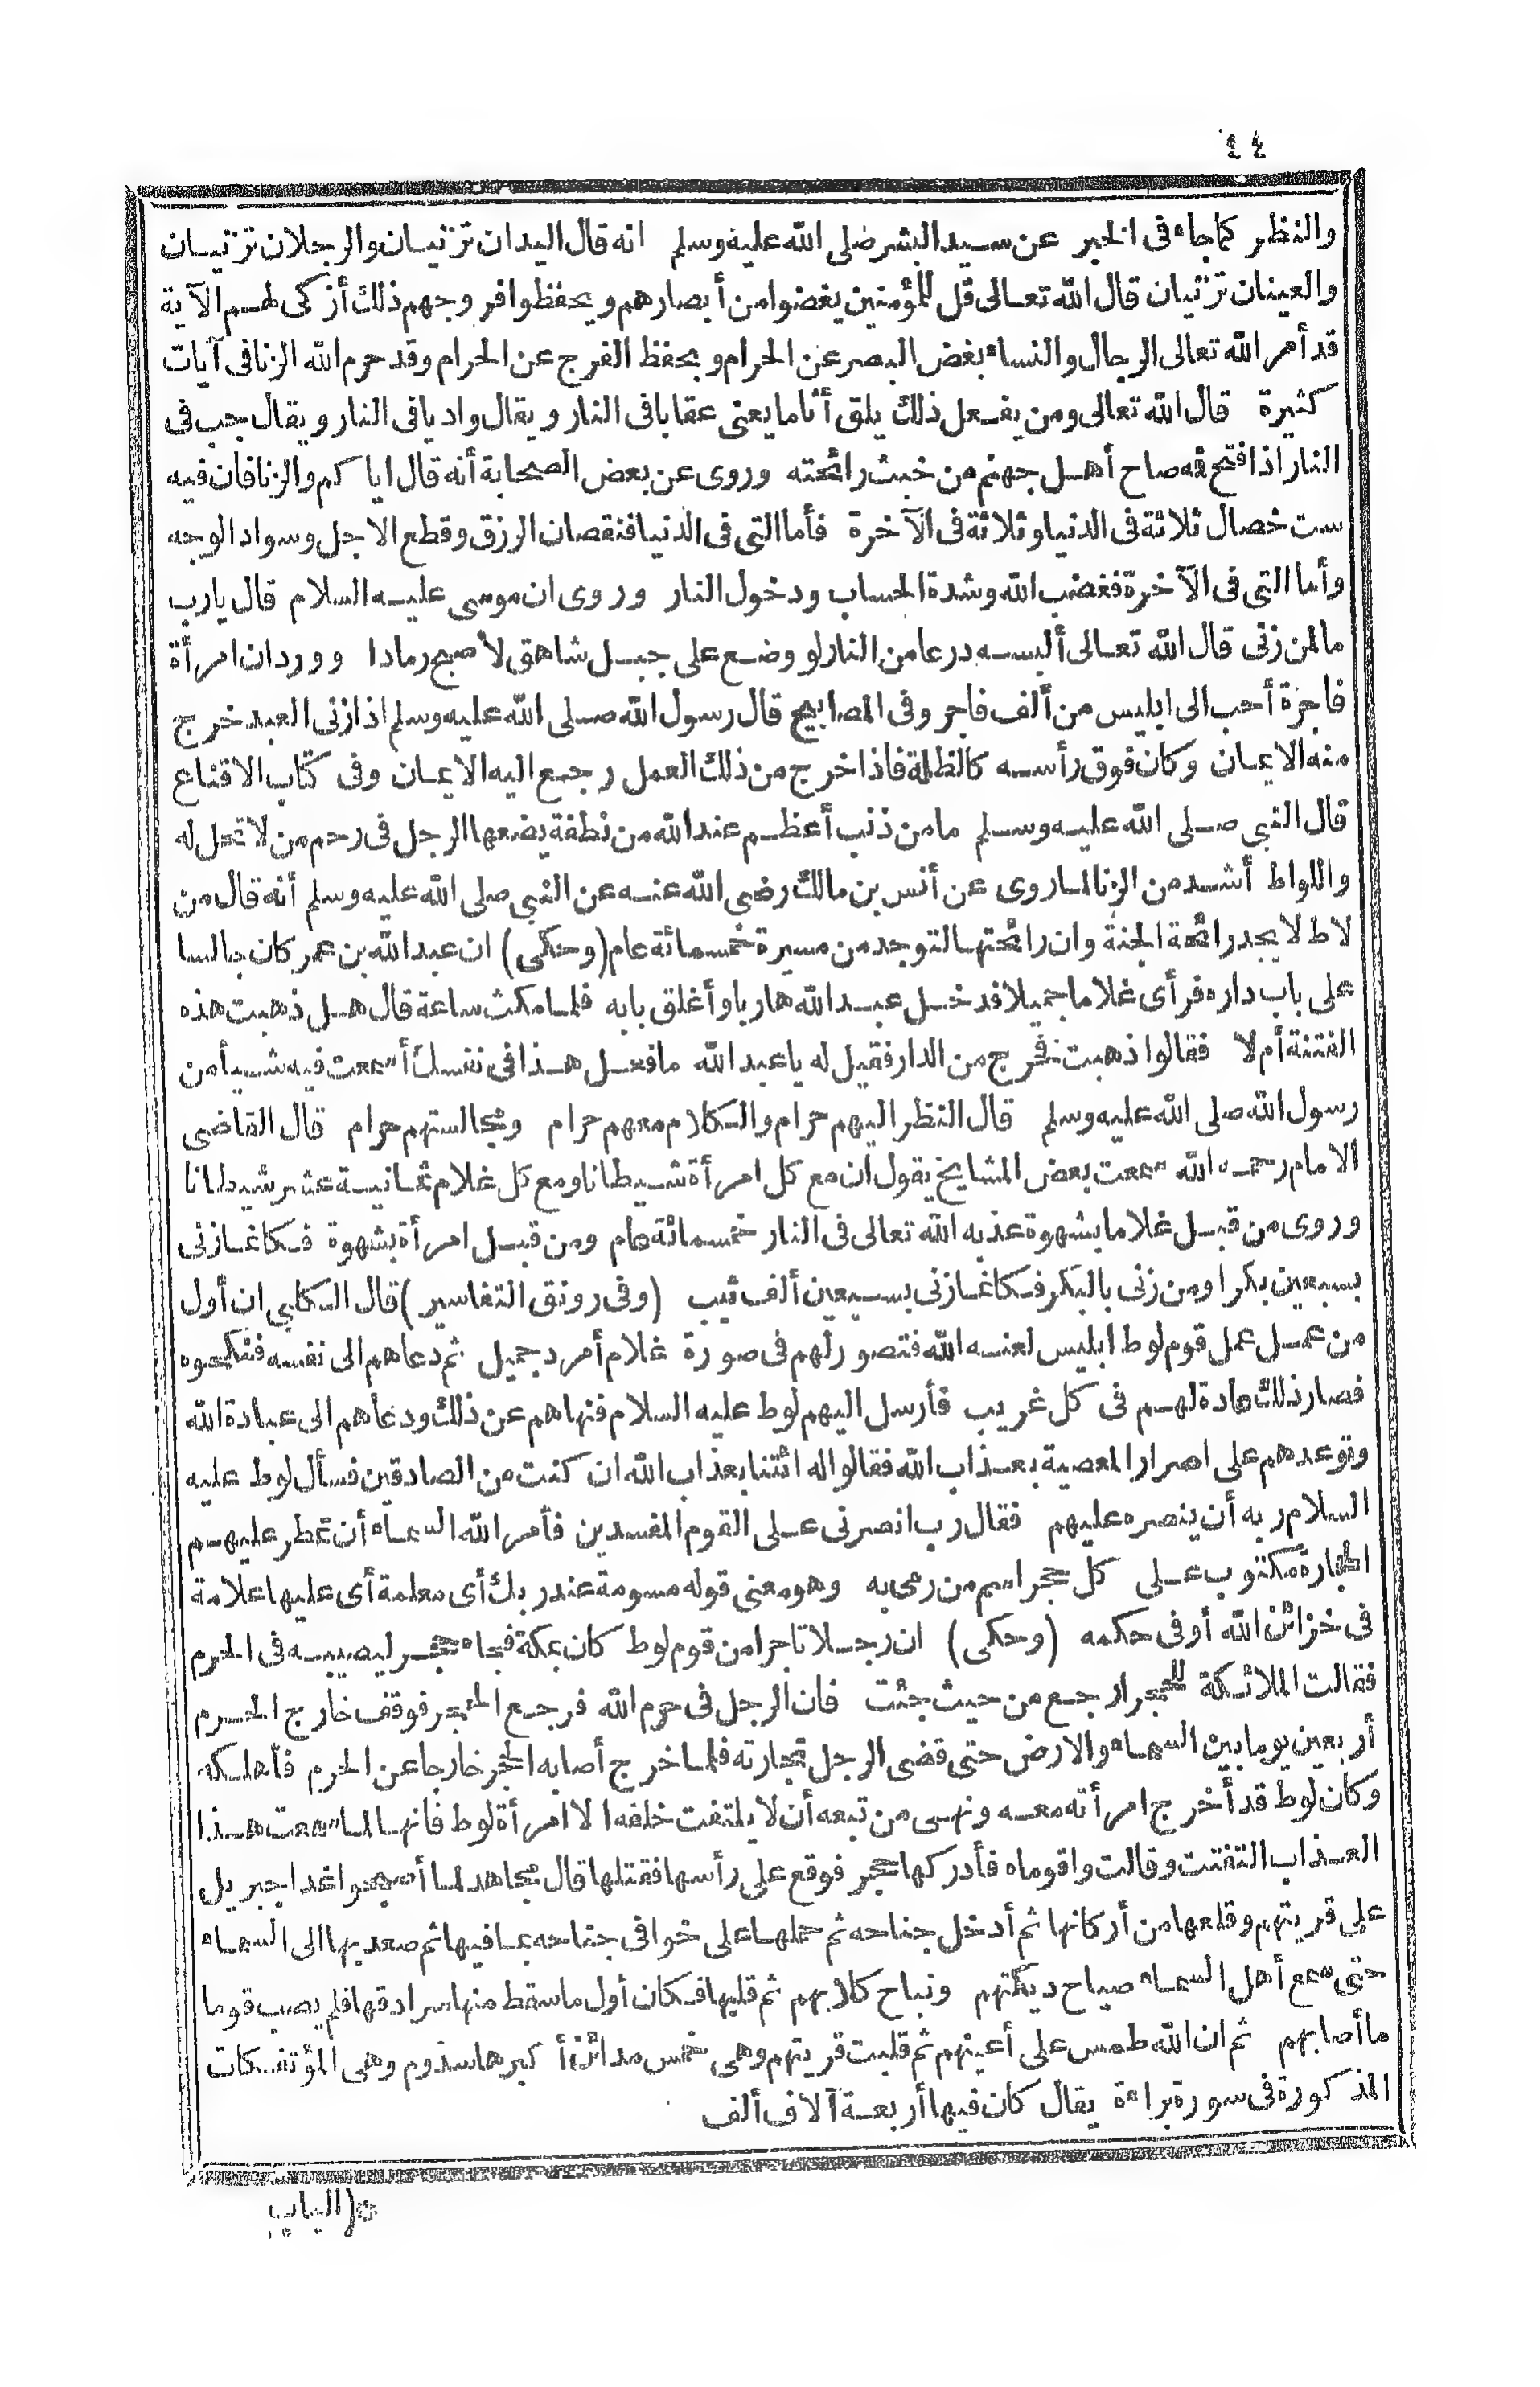 ٤٤
والنظر كماجاء فى الخبر عن سيد البشر صلى الله عليه وسلم انه قال اليدان تزنيان والرجلان تزنيان
والعينان تزنيان قال الله تعالى قل للمؤمنين يغضوا من أبصارهم ويحفظوا فروجهم ذلك أزكى لهم الآية
قد أمر الله تعالى الرجال والنساء بغض البصر عن الحرام وبحفظ الفرج عن الحرام وقد حرم الله الزنا فى آيات
كثيرة قال الله تعالى ومن يفعل ذلك يلق أثاما يعنى عقابا فى النار ويقال واديا فى النار ويقال جب فى
النار اذا فتح فه صاح أهل جهنم من خبث رائحته وروى عن بعض الصحابة أنه قال اياكم والزنا فان فيه
ست خصال ثلاثة فى الدنيا وثلاثة فى الآخرة فأما التى فى الدنيا فنقصان الرزق وقطع الاجل وسواد الوجه
وأما التى فى الآخرة فغضب الله وشدة الحساب ودخول النار وروى ان موسى عليه السلام قال يارب
مالمن زنى قال الله تعالى ألبسه درعا من النار لو وضع على جبل شاهق لاصبح رمادا وورد ان امرأة
فاجرة أحب الى ابليس من ألف فاجر وفى المصابيح قال رسول الله صلى الله عليه وسلم اذا زنى العبد خرج
منه الايمان وكان فوق رأسه كالظلة فاذا خرج من ذلك العمل رجع اليه الايمان وفى كتاب الاقناع
قال النبى صلى الله عليه وسلم ما من ذنب أعظم عند الله من نطفة يضعها الرجل فى رحم من لا تحل له
واللواط أشد من الزنا لما روى عن أنس بن مالك رضى الله عنه عن النبى صلى الله عليه وسلم أنه قال من
لاط لا يجد رائحة الجنة وان رائحتها لتوجد من مسيرة خمسمائة عام (وحكى) ان عبد الله بن عمر كان جالسا
على باب داره فرأى غلاما جميلا فدخل عبد الله هاربا وأغلق بابه فلما مكث ساعة قال هل ذهبت هذه
الفتنة أم لا فقالوا ذهبت فخرج من الدار فقيل له يا عبد الله ما فعل هذا فى نفسك أسمعت فيه شيأ من
رسول الله صلى الله عليه وسلم قال النظر اليهم حرام والكلام معهم حرام ومجالستهم حرام قال القاضى
الامام رحمه الله سمعت بعض المشايخ يقول ان مع كل امرأة شيطانا ومع كل غلام ثمانية عشر شيطانا
وروى من قبل غلاما بشهوة عذبه الله تعالى فى النار خمسمائة عام ومن قبل امرأة بشهوة فكانما زنى
بسبعين بكرا ومن زنى بالبكر فكانما زنى بسبعين ألف ثيب (وفى رونق التفاسير) قال الكلبى ان أول
من عمل عمل قوم لوط ابليس لعنه الله فتصور لهم فى صورة غلام أمرد جميل ثم دعاهم الى نفسه فنكحوه
فصار ذلك عادة لهم فى كل غريب فأرسل اليهم لوط عليه السلام فنهاهم عن ذلك ودعاهم الى عبادة الله
وتوعدهم على اصرار المعصية بعذاب الله فقالوا له ائتنا بعذاب الله ان كنت من الصادقين فسأل لوط عليه
السلام ربه أن ينصره عليهم فقال رب انصرنى على القوم المفسدين فأمر الله السماء أن تمطر عليهم
الحجارة مكتوب على كل حجر اسم من رمى به وهو معنى قوله مسومة عند ربك أى معلمة أى عليها علامة
فى خزائن الله أو فى حكمه (وحكى) ان رجلا تاجرا من قوم لوط كان بمكة فجاء حجر ليصيبه فى الحرم
فقالت الملائكة للحجر ارجع من حيث جئت فان الرجل فى حرم الله فرجع الحجر فوقف خارج الحرم
أربعين يوما بين السماء والارض حتى قضى الرجل تجارته فلما خرج أصابه الحجر خارجا عن الحرم فأهلكه
وكان لوط قد أخرج امرأته معه ونهى من تبعه أن لا يلتفت خلفه الا امرأة لوط فانها لما سمعت هذا
العذاب التفتت وقالت واقوماه فأدركها حجر فوقع على رأسها فقتلها قال مجاهد لما أصبحوا غدا جبريل
على قريتهم وقلعها من أركانها ثم أدخل جناحه ثم حملها على خوافى جناحه بما فيها ثم صعد بها الى السماء
حتى سمع أهل السماء صياح ديكتهم ونباح كلابهم ثم قلبها فكان أول ما سقط منها سرادقها فلم يصب قوما
ما أصابهم ثم ان الله طمس على أعينهم ثم قلبت قريتهم وهى خمس مدائن أكبرها سذوم وهى المؤتفكات
المذكورة فى سورة براءة يقال كان فيها أربعة آلاف ألف
*(الباب